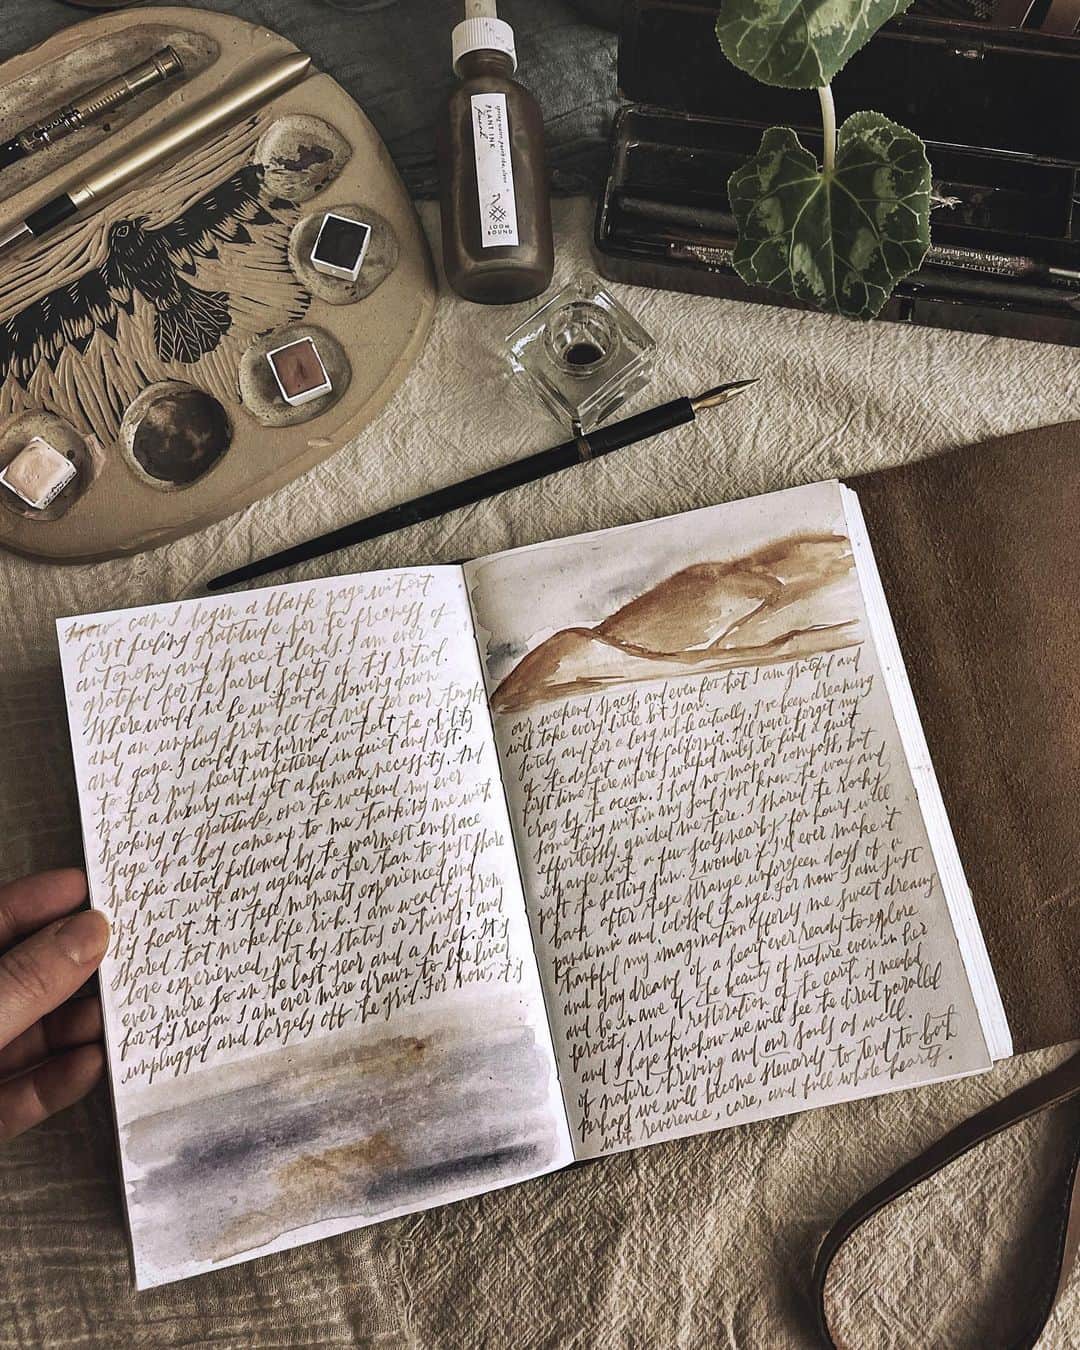 PLANT INK
LOOM
BOUND
How can I begin a blank page without
first feeling gratitude for the freeness of
autonomy and space it lends. I am ever
grateful for the sacred safety of this ritual.
Where would we be without a slowing down
and an unplug from all that vies for our thought
and gaze. I could not survive without the ability
to hear my heart unfettered in quiet and rest.
Both a luxury and yet a human necessity. And
speaking of gratitude, over the weekend my ever
sage of a boy came up to me thanking me with
specific detail followed by the warmest embrace
and not with any agenda other than to just share
his heart. It is these moments experienced and
shared that make life rich. I am wealthy from
love experienced, not by status or things, and
ever more so in the last year and a half. It is
for this reason I am ever more drawn to life lived
unplugged and largely off the grid. For now, it is
our weekend spaces, and even for that I am grateful and
will take every little bit I can.
lately and for a long while actually, I've been dreaming
of the desert and of California. I'll never forget my
first time there where I walked miles to find a quiet
crag by the ocean. I had no map or compass, but
something within my soul just knew the way and
effortlessly guided me there. I shared the rocky
expanse with a few seals nearby, for hours well
past the setting sun. I wonder if I'll ever make it
back after these strange unforseen days of a
pandemic and colossal change. For now I am just
thankful my imagination affords me sweet dreams
and day dreams of a heart ever ready to explore
and be in awe of the beauty of nature even in her
ferocity. Much restoration of the earth is needed
and I hope somehow we will see the direct parallel
of nature thriving and our souls as well.
Perhaps we will become stewards to tend to both
with reverence, care, and full whole hearts.